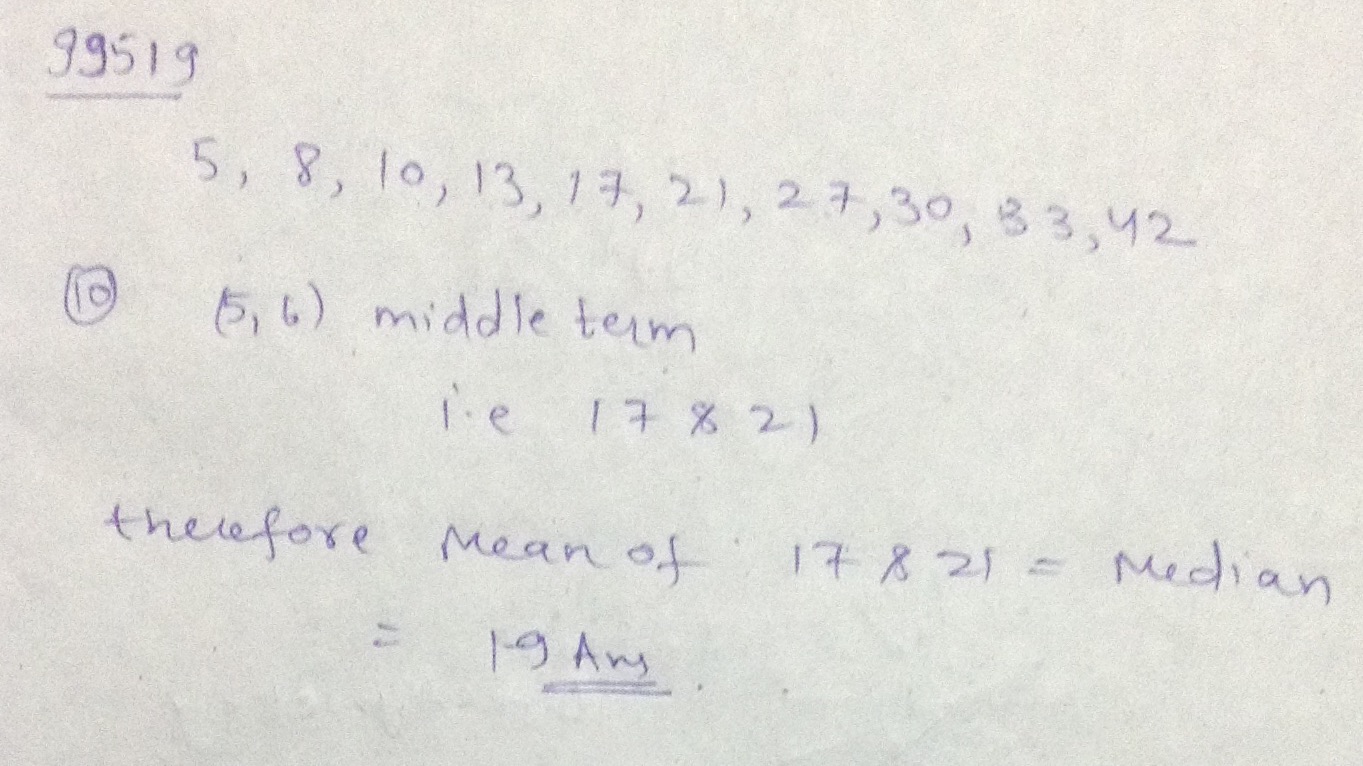 99519
5, 8, 10, 13, 17, 21, 27, 30, 33, 42
10 (5, 6) middle term
i.e 17 & 21
therefore Mean of 17 & 21 = Median
= 19 Ans.